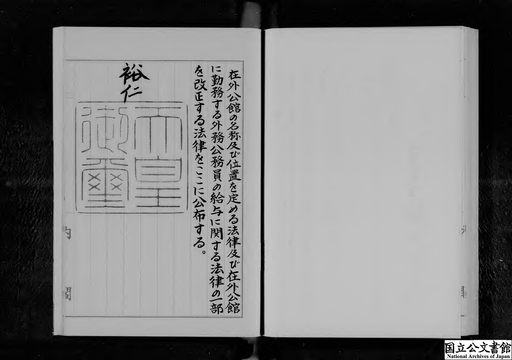 在外公館の名称及び位置を定める法律及び在外公館
に勤務する外務公務員の給与に関する法律の一部
を改正する法律をここに公布する。
裕仁
天皇御璽
内閣
国立公文書館
National Archives of Japan